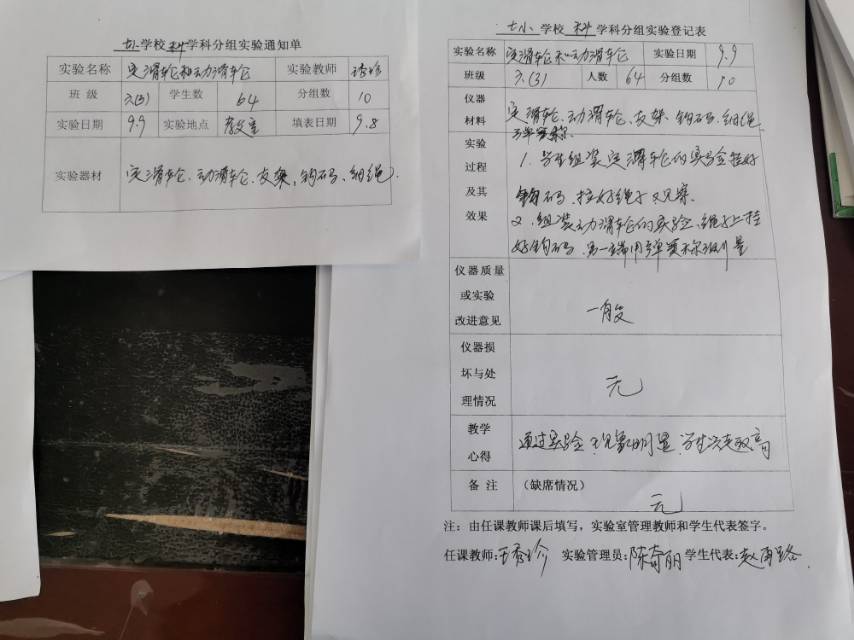 学校 科 学科分组实验通知单
实验名称 定滑轮和动滑轮 实验教师
班 级 六(3) 学生数 64 分组数 10
实验日期 9.9 实验地点 教室 填表日期 9.8
实验器材 定滑轮、动滑轮、支架、钩码、细绳.
七小 学校 科 学科分组实验登记表
实验名称 定滑轮和动滑轮 实验日期 9.9
班级 六(3) 人数 64 分组数 10
仪器
材料
定滑轮、动滑轮、支架、钩码、细绳
弹簧称.
实验
过程
及其
效果
1. 学生组装定滑轮的实验挂好
钩码,拉好绳子,观察.
2.组装动滑轮的实验,绳子上挂
好钩码,另一端用弹簧称测量
仪器质量
或实验
改进意见
一般
仪器损
坏与处
理情况
无
教学
心得
通过实验,现象明显,学生兴趣高
备 注 (缺席情况)
无
注:由任课教师课后填写,实验室管理教师和学生代表签字。
任课教师:王秀珍 实验管理员:陈奇丽 学生代表: